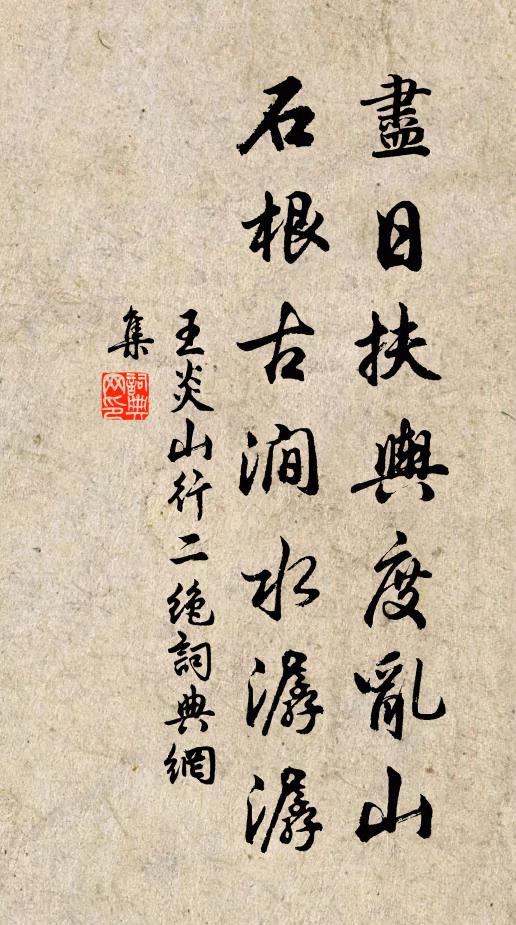 盡日扶輿度亂山
石根古澗水潺潺
王炎山行二絶詞典網
集
詞典网印